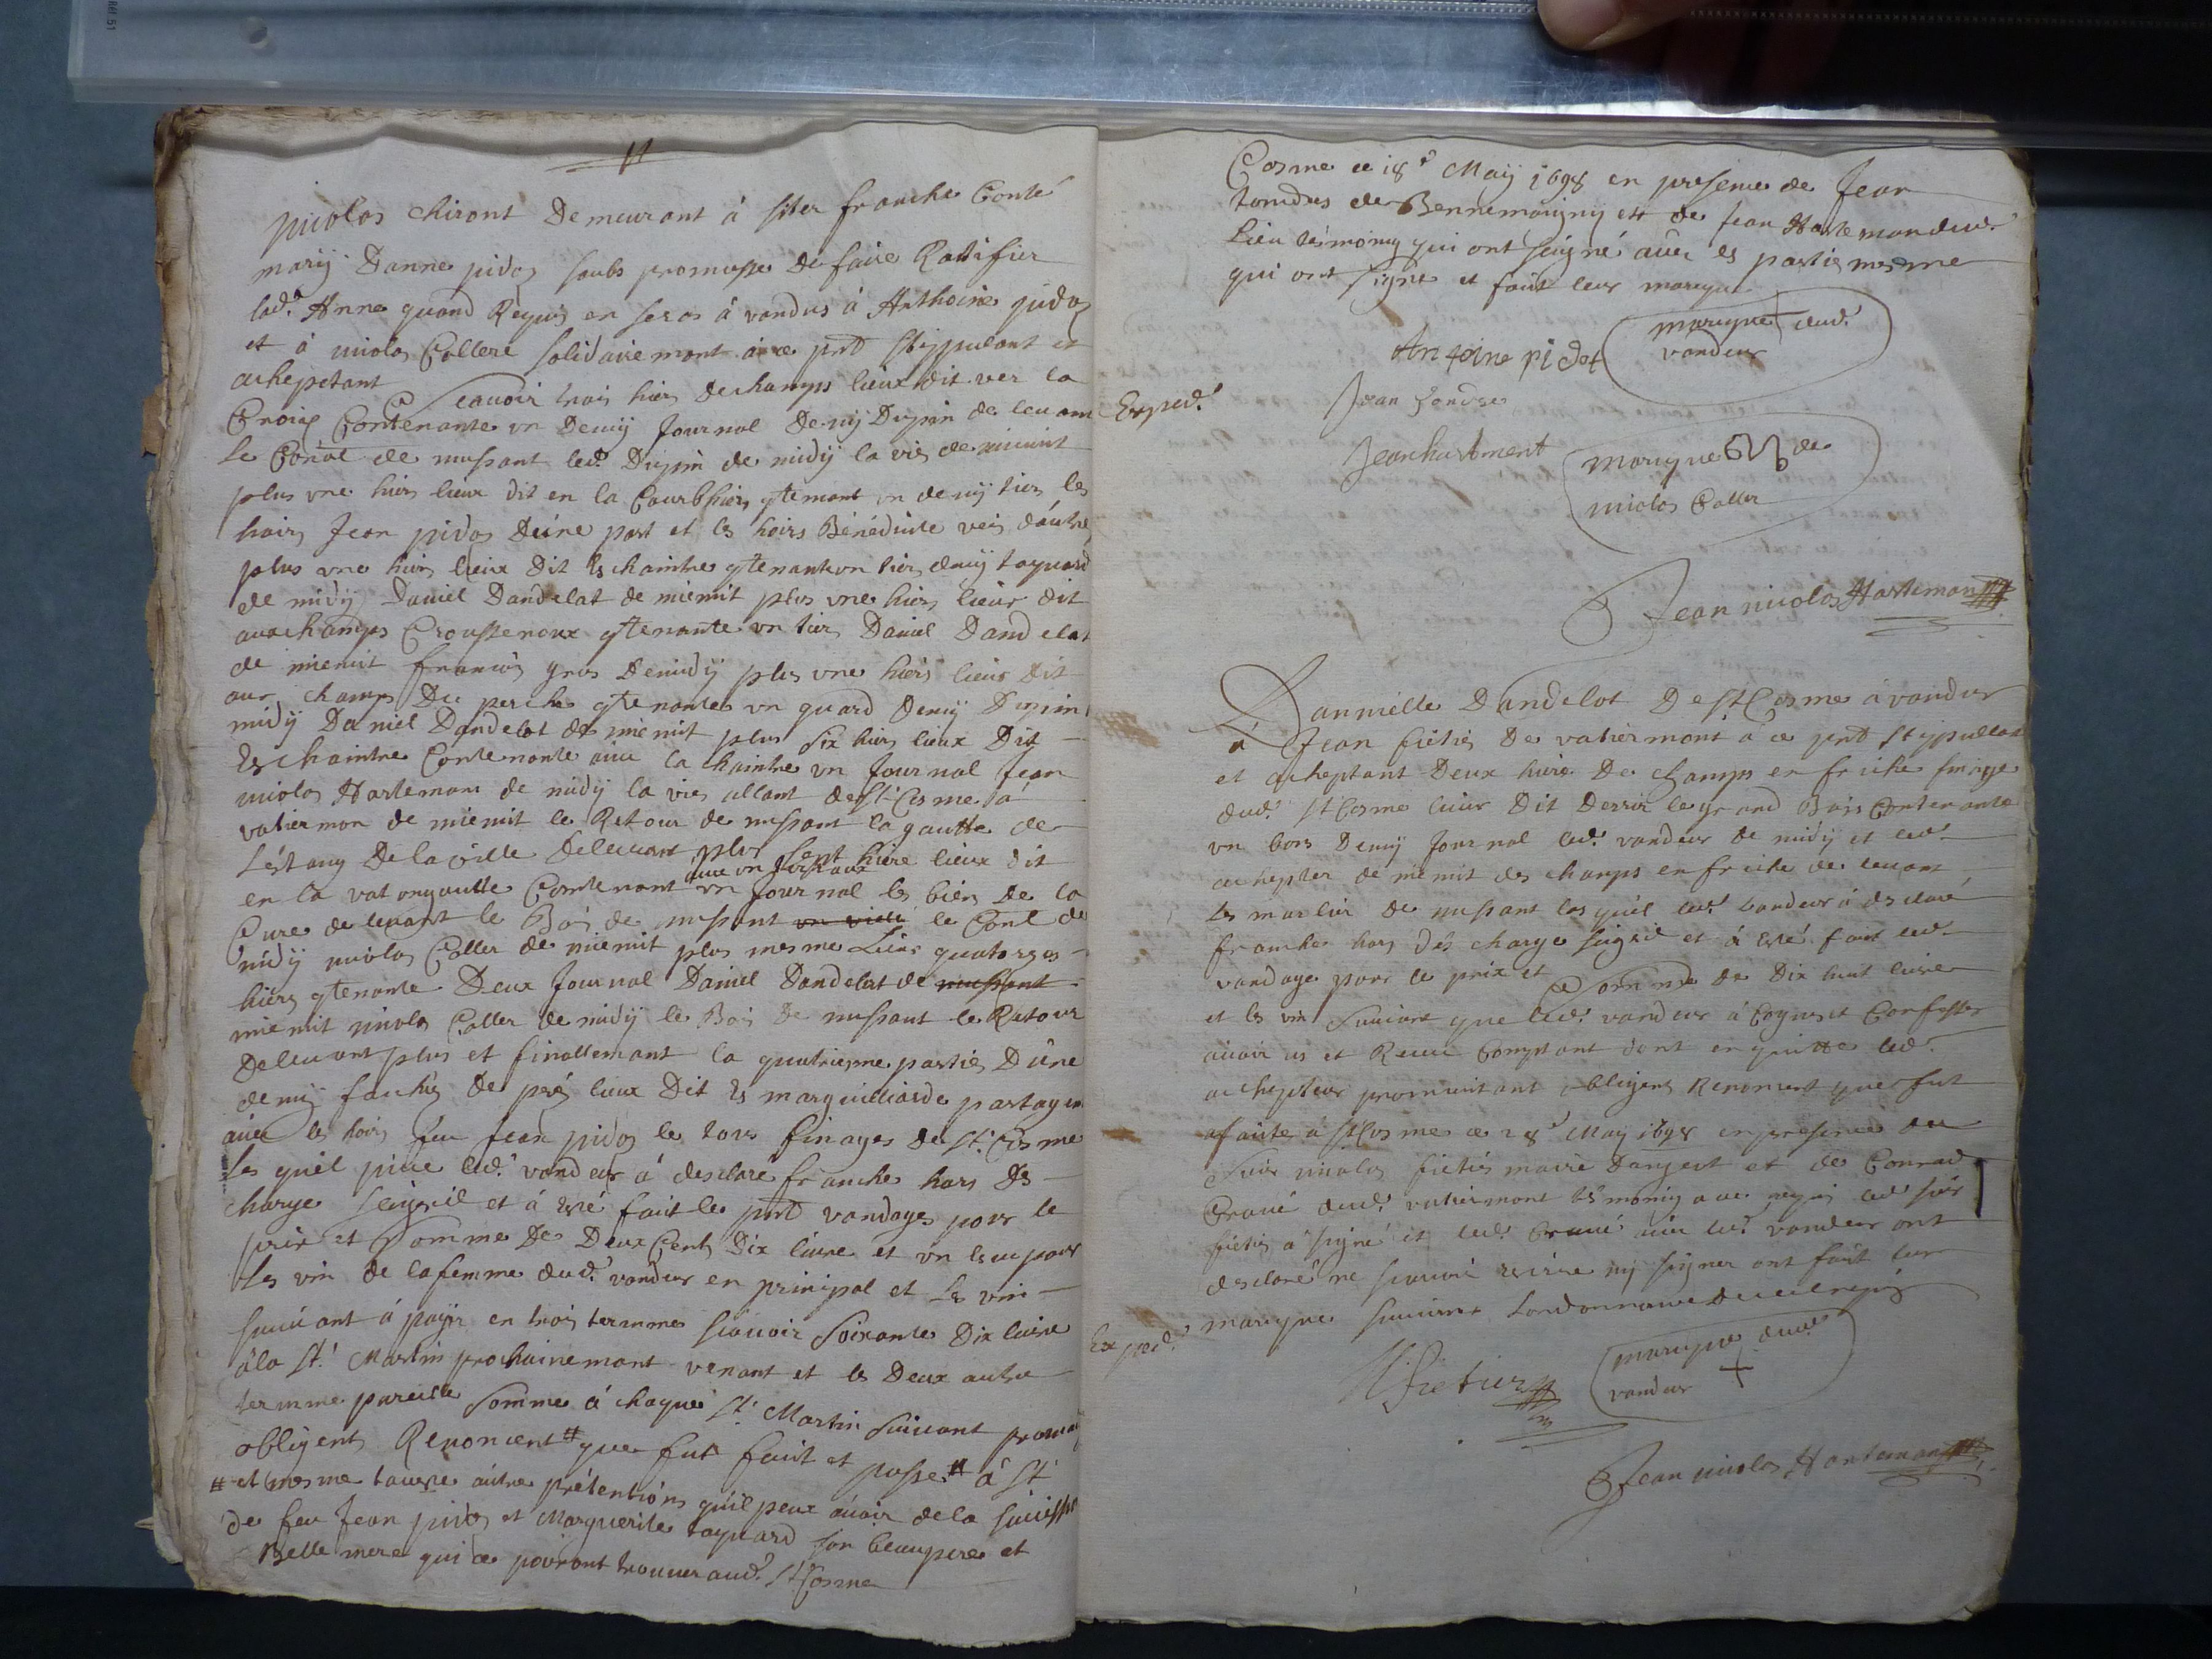 nicolas chiront Demeurant à sitez franche Conté
marÿ Danne pidoz soubs promesse de faire Ratifier
lad.e Anne quand Requis en seras à vandus à Anthoine pidoz
et à nicolas Collere solidairemont à ce pnt stippulant et
acheptant Scauoir trois hiers deschamps lieux dit ver la
Croix Contenante vn Demÿ Journal Demÿ Dupin de leuant
le Conal de nussant led.t Dupin de midÿ la vie de mienuit
plus vne hiers lieux dit en la Courbhiers gtemant vn demÿ tier les
hoirs Jean pidoz Dúne part et les hoirs Bénédicte veis dáutre
plus vne hiers lieux Dit Es chaintre gtenante vn tier demÿ taquard
de midÿ Daniel Dandelat de miemit plus vne hiers lieux dit
aux champs Croussenoux gtenante vn tier Daniel Dandelat
de mienuit francois gros demidÿ plus vne hiers lieux dit
aux champs Du perche gtenante vn quard Demÿ Dupin
midÿ Daniel Dandelot de miemit plus six hiers lieux Dit
Es chaintre Contenante auec la chaintre vn Journal Jean
nicolas Hartemann de midÿ la vie allant de St Cosme à
vatiermon de mienuit le Retour de nussant la goutte de
Léstang De la ville de leuant plus sept hiere lieux dit
en la vat onguille Contenant vn Journal les bien De la
Cure de leuant le Bois de nussant le Cont de
midÿ nicolas Coller de mienuit plus mesme Lieux quatorzes
hiers gtenante Deux Journal Daniel Dandelat de nussant
mienuit nicolas Coller de midÿ le Bois De nussant le Retour
De leuant plus et finallemant la quatriesme partie Dúne
demÿ fauchés De prez lieux Dit Es marguilliarde partagent
auec les hoirs feu Jean pidoz le tous finages de St Cosme
les quel piece led.t vandeur à desclaré franche hors des
charge seigneil et à esté fait le pnt vandages pour le
prix et Somme De Deux Cent Dix liure et vn lecu pour
les vin de lafemme dud.t vandeur en principal et Les vin
suiuant à payir en trois termme scauoir Soixante Dix liure
à la St. Martin prochainemant venant et les Deux autre
termme pareille Somme à chaque St. Martin suiuant promet
obligent Renoncent # que fut fait et passe # à St
# et mesme toutte autre prétentions quil peux auoir de la succession
de feu Jean pidoz et Marguerite taquard son beaupere et
Belle mere qui ce pouront trouuer aud.t St Cosme
Cosme ce 18e Maÿ 1698 en presence de Jean
tondus de Bennemarignÿ et de Jean Hartemandud.t
Lieu tesmoing qui ont signé auec les partie mesme
qui ont signe et fait leur marque
marque dud.t
vandeur
Antoine pidot
Exped.t
Jean
Jeanhartment
marque de
nicolas Coller
Jean nicolas Harteman
Dannielle Dandelot De St Cosme à vandus
à Jean fietier De vatiermont à ce pnt stippullant
et acheptant Deux hiere De champs en friche finage
dud.t St Cosme lieux Dit Derrier le grand Bois Contenante
vn bons Demÿ Journal led.t vandeur de midÿ et led.t
achepter de mienuit des champs en friche de leuant
les marlier de nussant les quil led.t vandeur à desclaré
franche hors des charge seigneil et à esté fait led.t
vandage pour le prix et Somme de Dix huit liure
et les vin suiuant que led.t vandeur à Cognus et Confesser
auoir us et Receu Comptant dont en quitte led.t
achepteur promettant obligent Renoncent que fut
afaite à St Cosme ce 28e Maÿ 1698 en presence du
Sieur nicolas fietier maire Dangeot et de Conrad
Craué dud.t vatiermont tesmoing a ce requis led sieur
fietier a signé et led.t Craué auec led.t vandeur ont
desclaré ne scauoir escrire nÿ signer ont fait leur
marque suiuant Lordonnance de ce enquis
Exped.t
N fietier
marque dud.t
vandeur
Jean nicolas Harteman